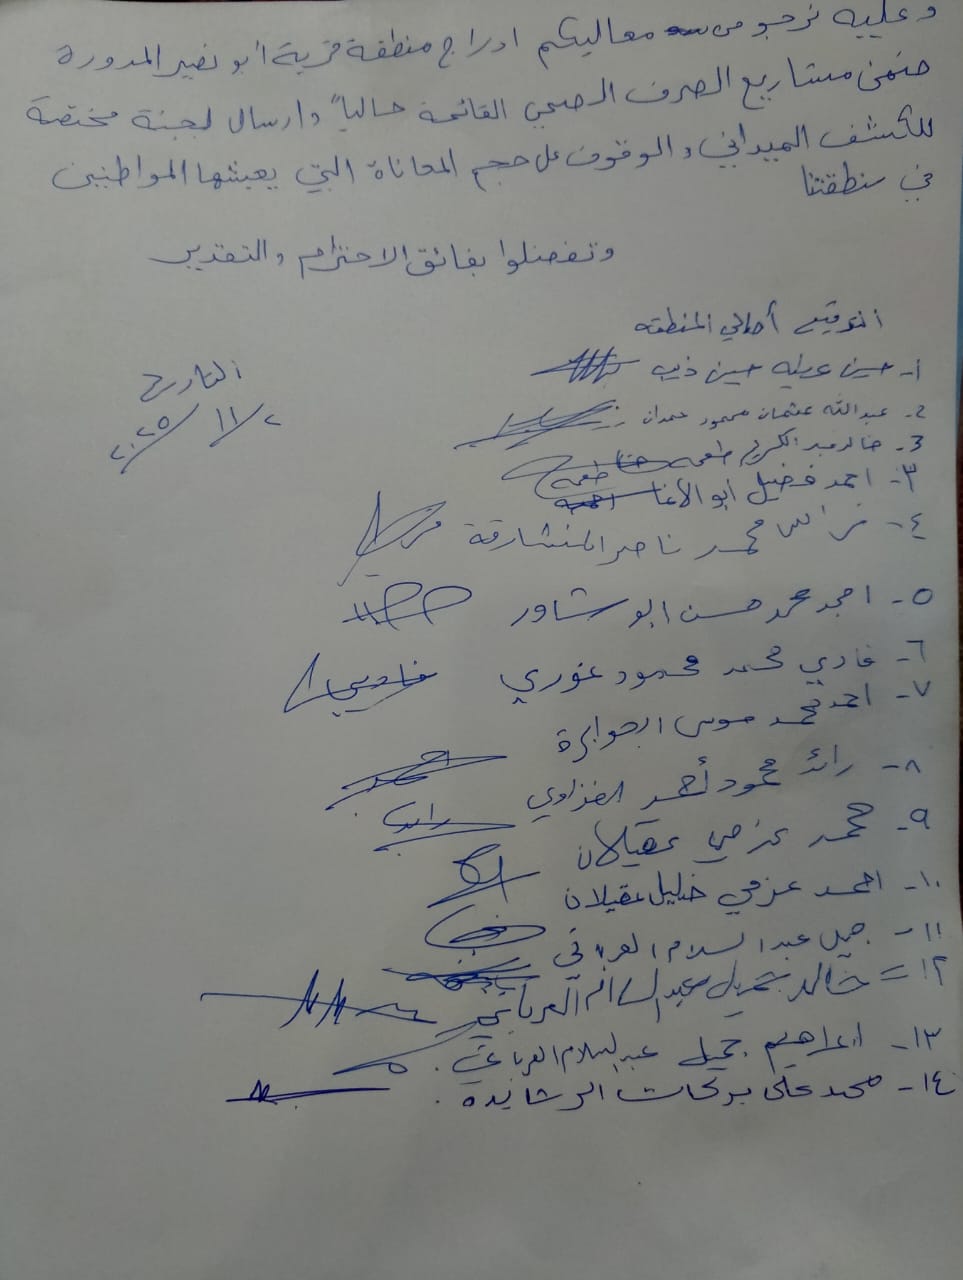 وعليه نرجو من معاليكم ادراج منطقة قرية أبو نصير المدورة
ضمن مشاريع الصرف الصحي القائمة حالياً وارسال لجنة مختصة
للكشف الميداني والوقوف على حجم المعاناة التي يعيشها المواطنين
في منطقتنا
وتفضلوا بفائق الاحترام والتقدير
التوقيع أهالي المنطقه
التاريخ
٢/١١/٢٠٢٥
١- حسين عطيه حسين ذيب
2- عبدالله عثمان محمود حمدان
3- خالد عبد الكريم طعمه
٣- احمد فضيل أبو الأغا
٤- فراس محمد ناصر المنشارقة
٥- امجد محمد حسن ابو شاور
٦- فادي محمد محمود غوري فادي
٧- احمد محمد موسى الجوابرة احمد
٨- رائد محمود أحمد الغزاوي رائد
٩- محمد عزمي عقيلان
١٠- احمد عزمي خليل عقيلان
١١- جميل عبد السلام العرباتي
١٢= خالد جميل عبدالسلام العرباتي
١٣- ابراهيم جميل عبدالسلام العرباتي.
١٤- محمد علي بركات الرشايده.